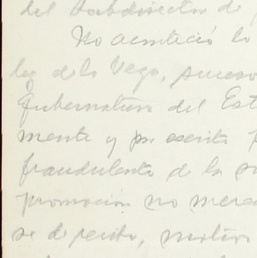 del Subdirector de
No aconteció lo
ley de la Vega, suceso
Gubernativa del Est
mente y por escrito
fraudulenta de la
promoción no merec
se de recibo, motivo